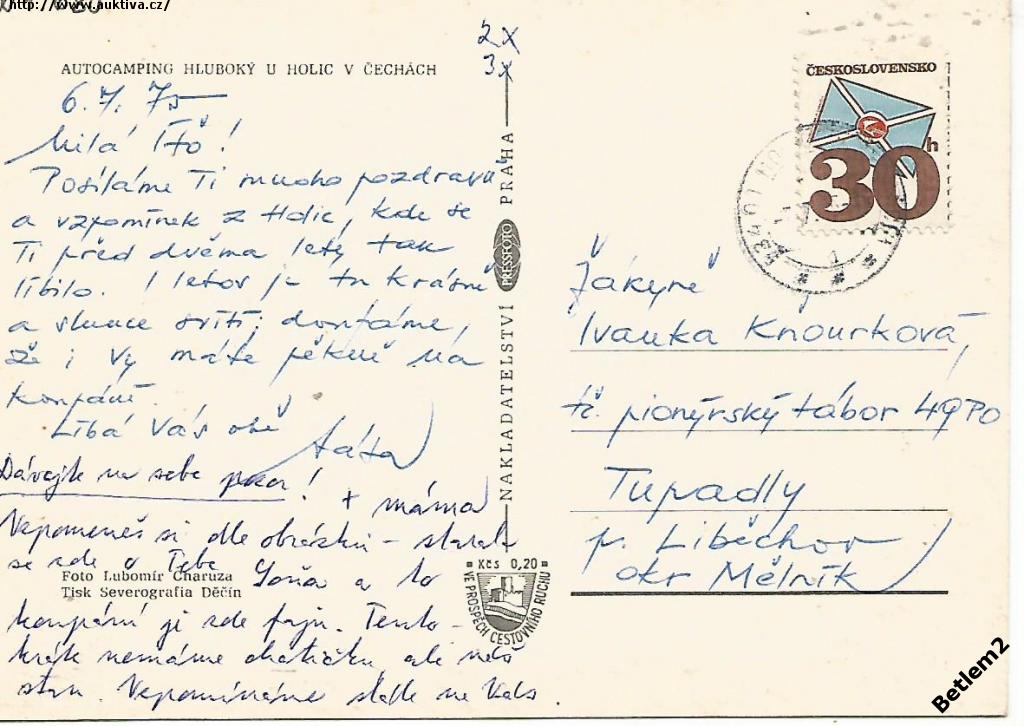 http://www.auktiva.cz/
2x
3x
AUTOCAMPING HLUBOKÝ U HOLIC V ČECHÁCH
6.7.75
Milá Ííó!
Posíláme Ti mnoho pozdravů
a vzpomínek z Holic, kde se
Ti před dvěma lety tak
líbilo. I letos je tu krásně
a slunce svítí; doufáme,
že i Vy máte pěkně na
koupání.
Líbá Vás obě táta
Dávejte na sebe pozor! + máma
Nepomeneš si dle obrázku – staral
se zde o Tebe a to
koupání je zde fajn. Tento-
krát nemáme chatičku, ale náš
stan. Nepomínáme stále na Vás.
Foto Lubomír Charuza
Tisk Severografia Děčín
NAKLADATELSTVÍ PRESSFOTO PRAHA
Kčs 0,20
VE PROSPĚCH CESTOVNÍHO RUCHU
ČESKOSLOVENSKO
30h
534 01
Žákyně
Ivanka Knourková,
tč. pionýrský tábor 49PO
Tupadly
p. Liběchov
okr Mělník
Betlem2